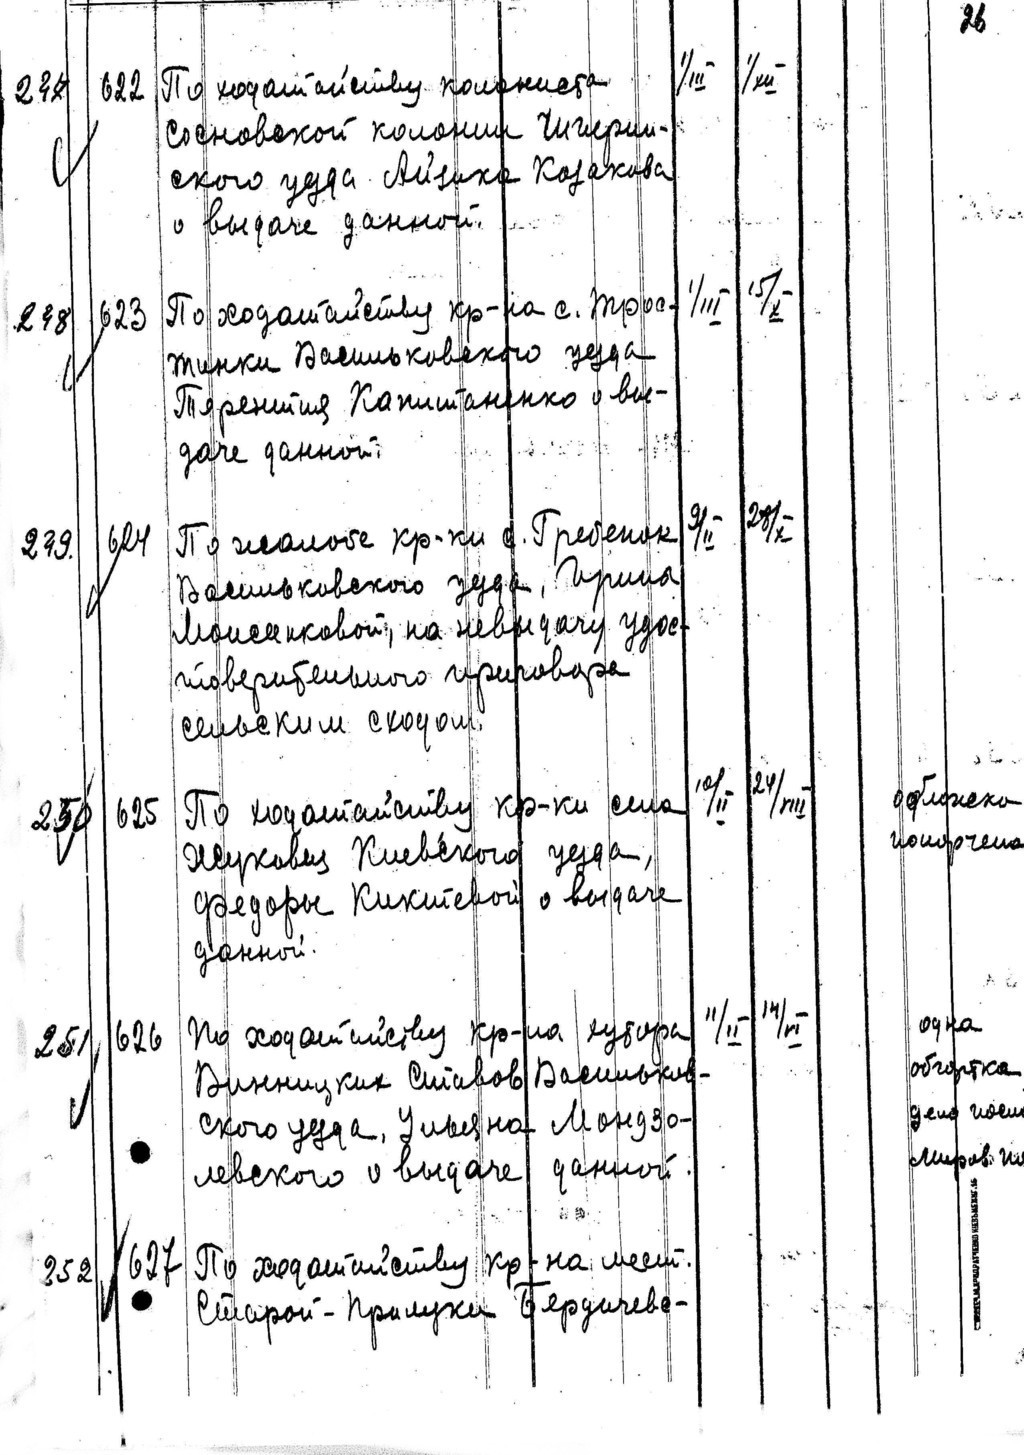 26
247 622 По ходатайству колониста 1/III 1/XII
Сосновской колонии Чигирин-
ского уезда Айзика Козакова
о выдаче данной.
248 623 По ходатайству кр-на с. Трос- 1/III 15/X
тинки Васильковского уезда
Терентия Капитаненко о вы-
даче данной.
249. 624 По жалобе кр-ки с. Гребенок 9/II 28/X
Васильковского уезда,
Моисенковой, на невыдачу удос-
товерительного приговора
сельским сходом.
250 625 По ходатайству кр-ки села 10/II 24/VIII обложка
Жуковец Киевского уезда, испорчена
Федоры Никитевой о выдаче
данной.
251 626 По ходатайству кр-на хутора 11/II 14/VI одна
Винницких Ставов Васильков- обгортка
ского уезда, Ульяна Мондзо- дело
левского о выдаче данной.
252 627 По ходатайству кр-на мест.
Старой-Прилуки Бердичевс-